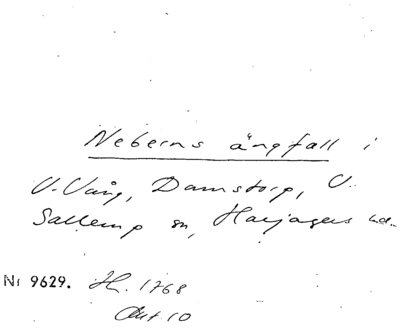 Neberns ängfall i
V. Vång, Damstorp, V.
Sallerup sn, Harjagers hd.
Nr 9629. H. 1768
Akt. 10